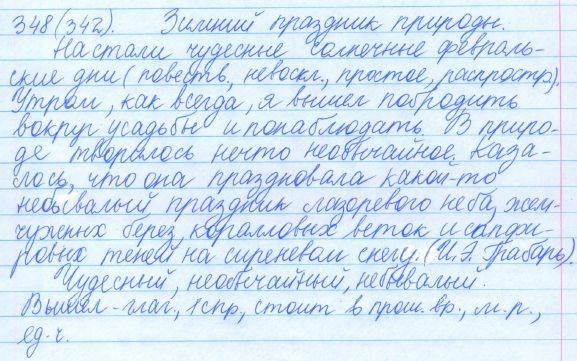 348(342). Зимний праздник природы.
Настали чудесные солнечные февраль-
ские дни (повеств., невоскл., простое, распростр.).
Утром, как всегда, я вышел побродить
вокруг усадьбы и понаблюдать. В приро-
де творилось нечто необычайное. Каза-
лось, что она праздновала какой-то
небывалый праздник лазоревого неба, жем-
чужных берез, коралловых веток и сапфи-
ровых теней на сиреневом снегу. (И.Э. Грабарь).
Чудесный, необычайный, небывалый.
Вышел - глаг., 1 спр., стоит в прош. вр., м. р.,
ед. ч.